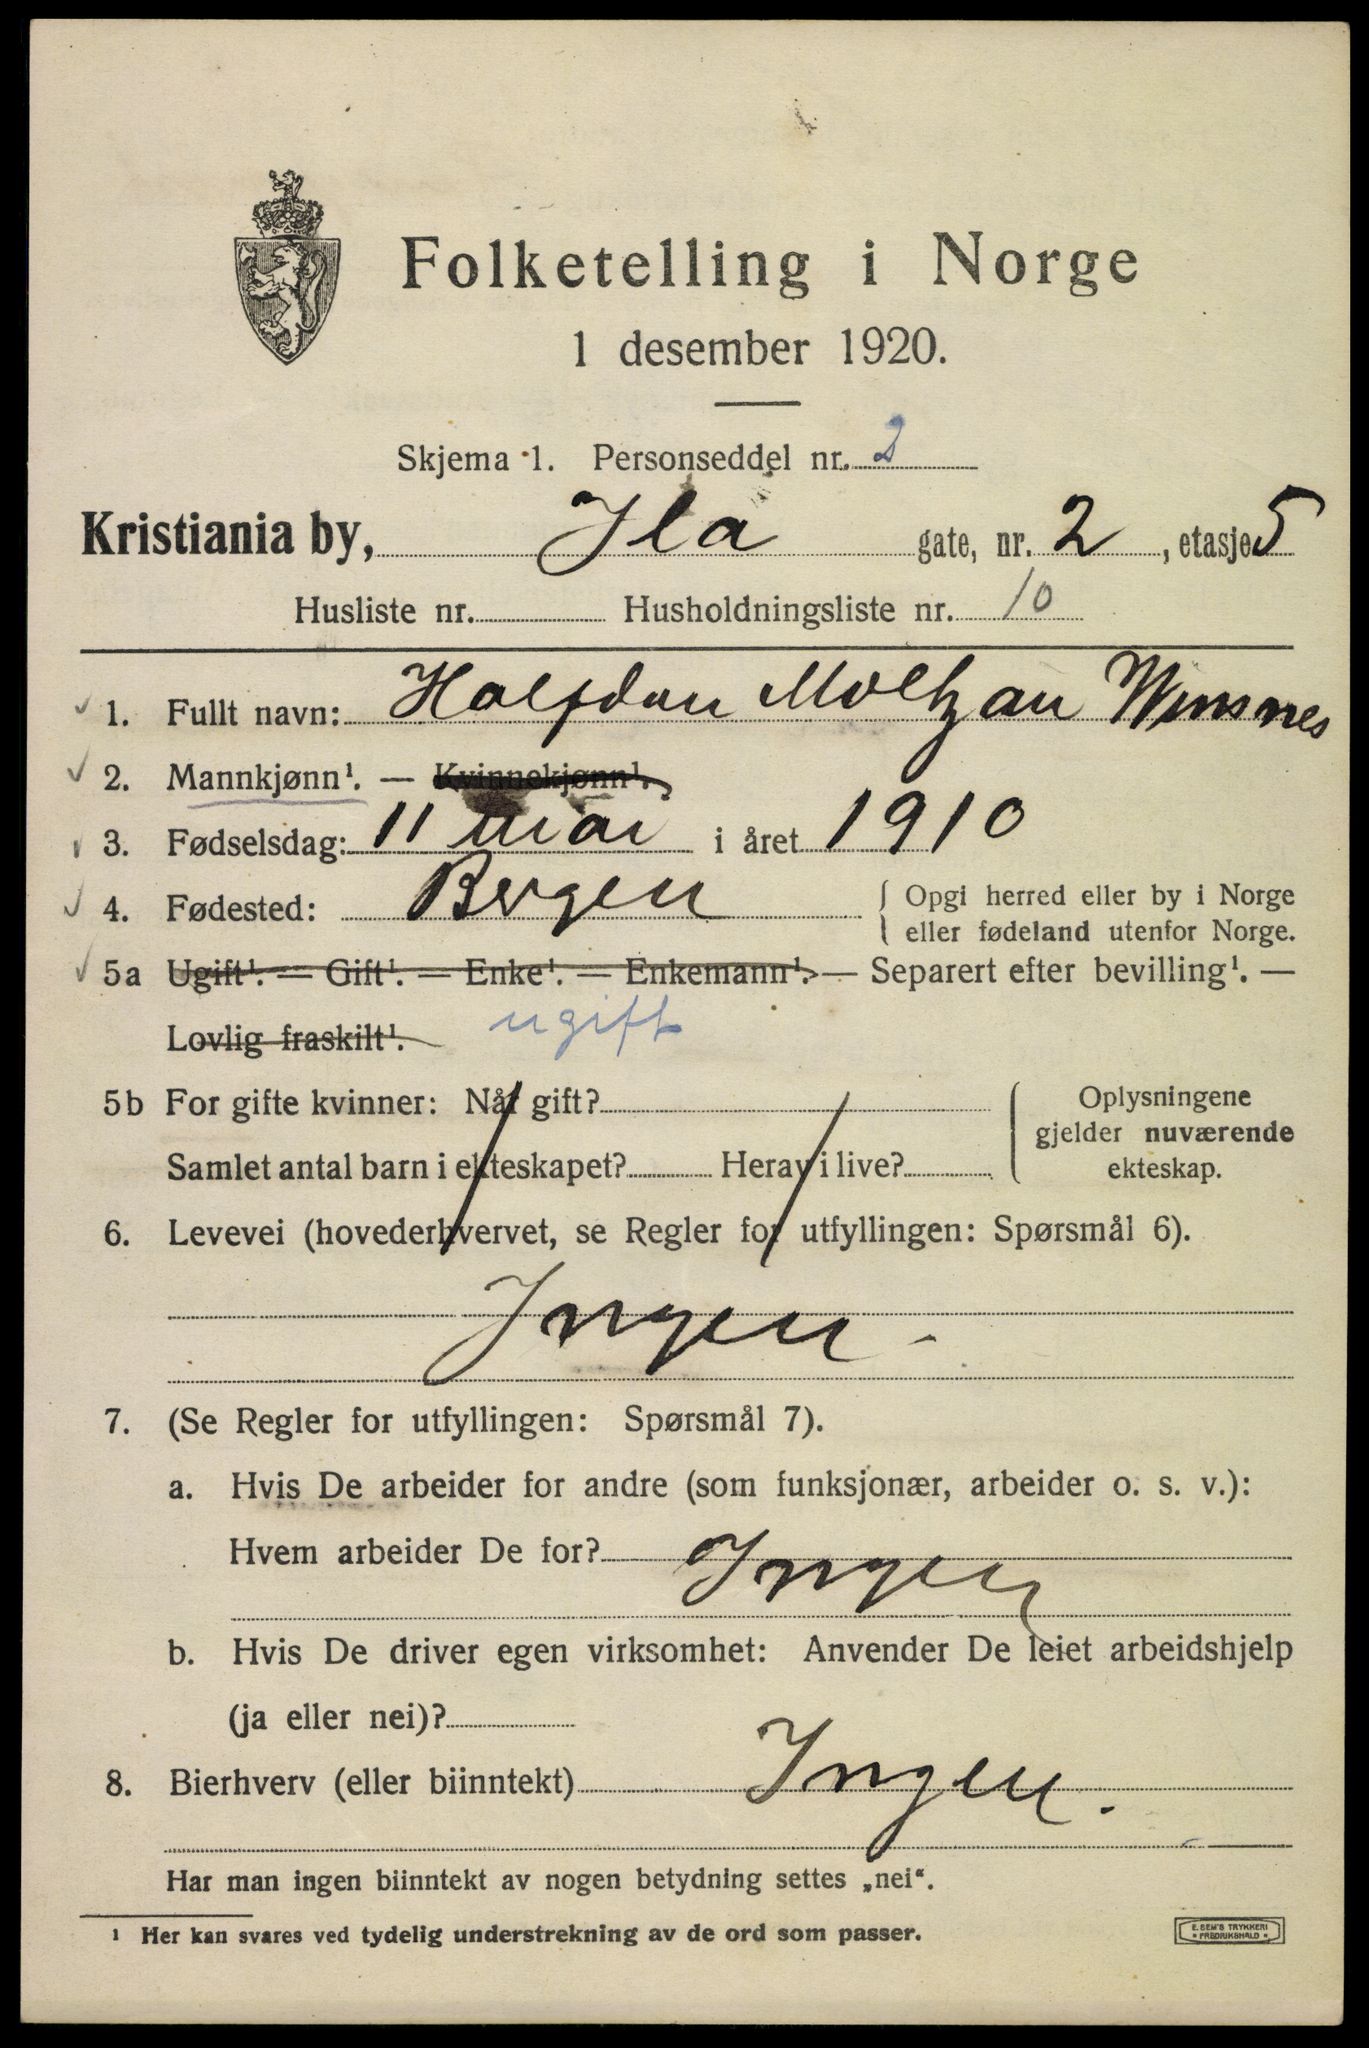 Folketelling i Norge
1 desember 1920.
Skjema 1. Personseddel nr. 2
Kristiania by, Ila gate, nr. 2, etasje 5
Husliste nr. Husholdningsliste nr. 10
1. Fullt navn: Halfdan Moltzau Winsnes
2. Mannkjønn¹. — Kvinnekjønn¹.
3. Fødselsdag: 11 mai i året 1910
4. Fødested: Bergen { Opgi herred eller by i Norge
eller fødeland utenfor Norge.
5a Ugift¹. — Gift¹. — Enke¹. — Enkemann¹. — Separert efter bevilling¹. —
Lovlig fraskilt¹. ugift
5b For gifte kvinner: Når gift?
Samlet antal barn i ekteskapet? Herav i live?
Oplysningene
gjelder nuværende
ekteskap.
6. Levevei (hovederhvervet, se Regler for utfyllingen: Spørsmål 6).
Ingen.
7. (Se Regler for utfyllingen: Spørsmål 7).
a. Hvis De arbeider for andre (som funksjonær, arbeider o. s. v.):
Hvem arbeider De for? Ingen
b. Hvis De driver egen virksomhet: Anvender De leiet arbeidshjelp
(ja eller nei)?
8. Bierhverv (eller biinntekt) Ingen.
Har man ingen biinntekt av nogen betydning settes „nei“.
¹ Her kan svares ved tydelig understrekning av de ord som passer.
E. SEM'S TRYKKERI
FREDRIKSHALD